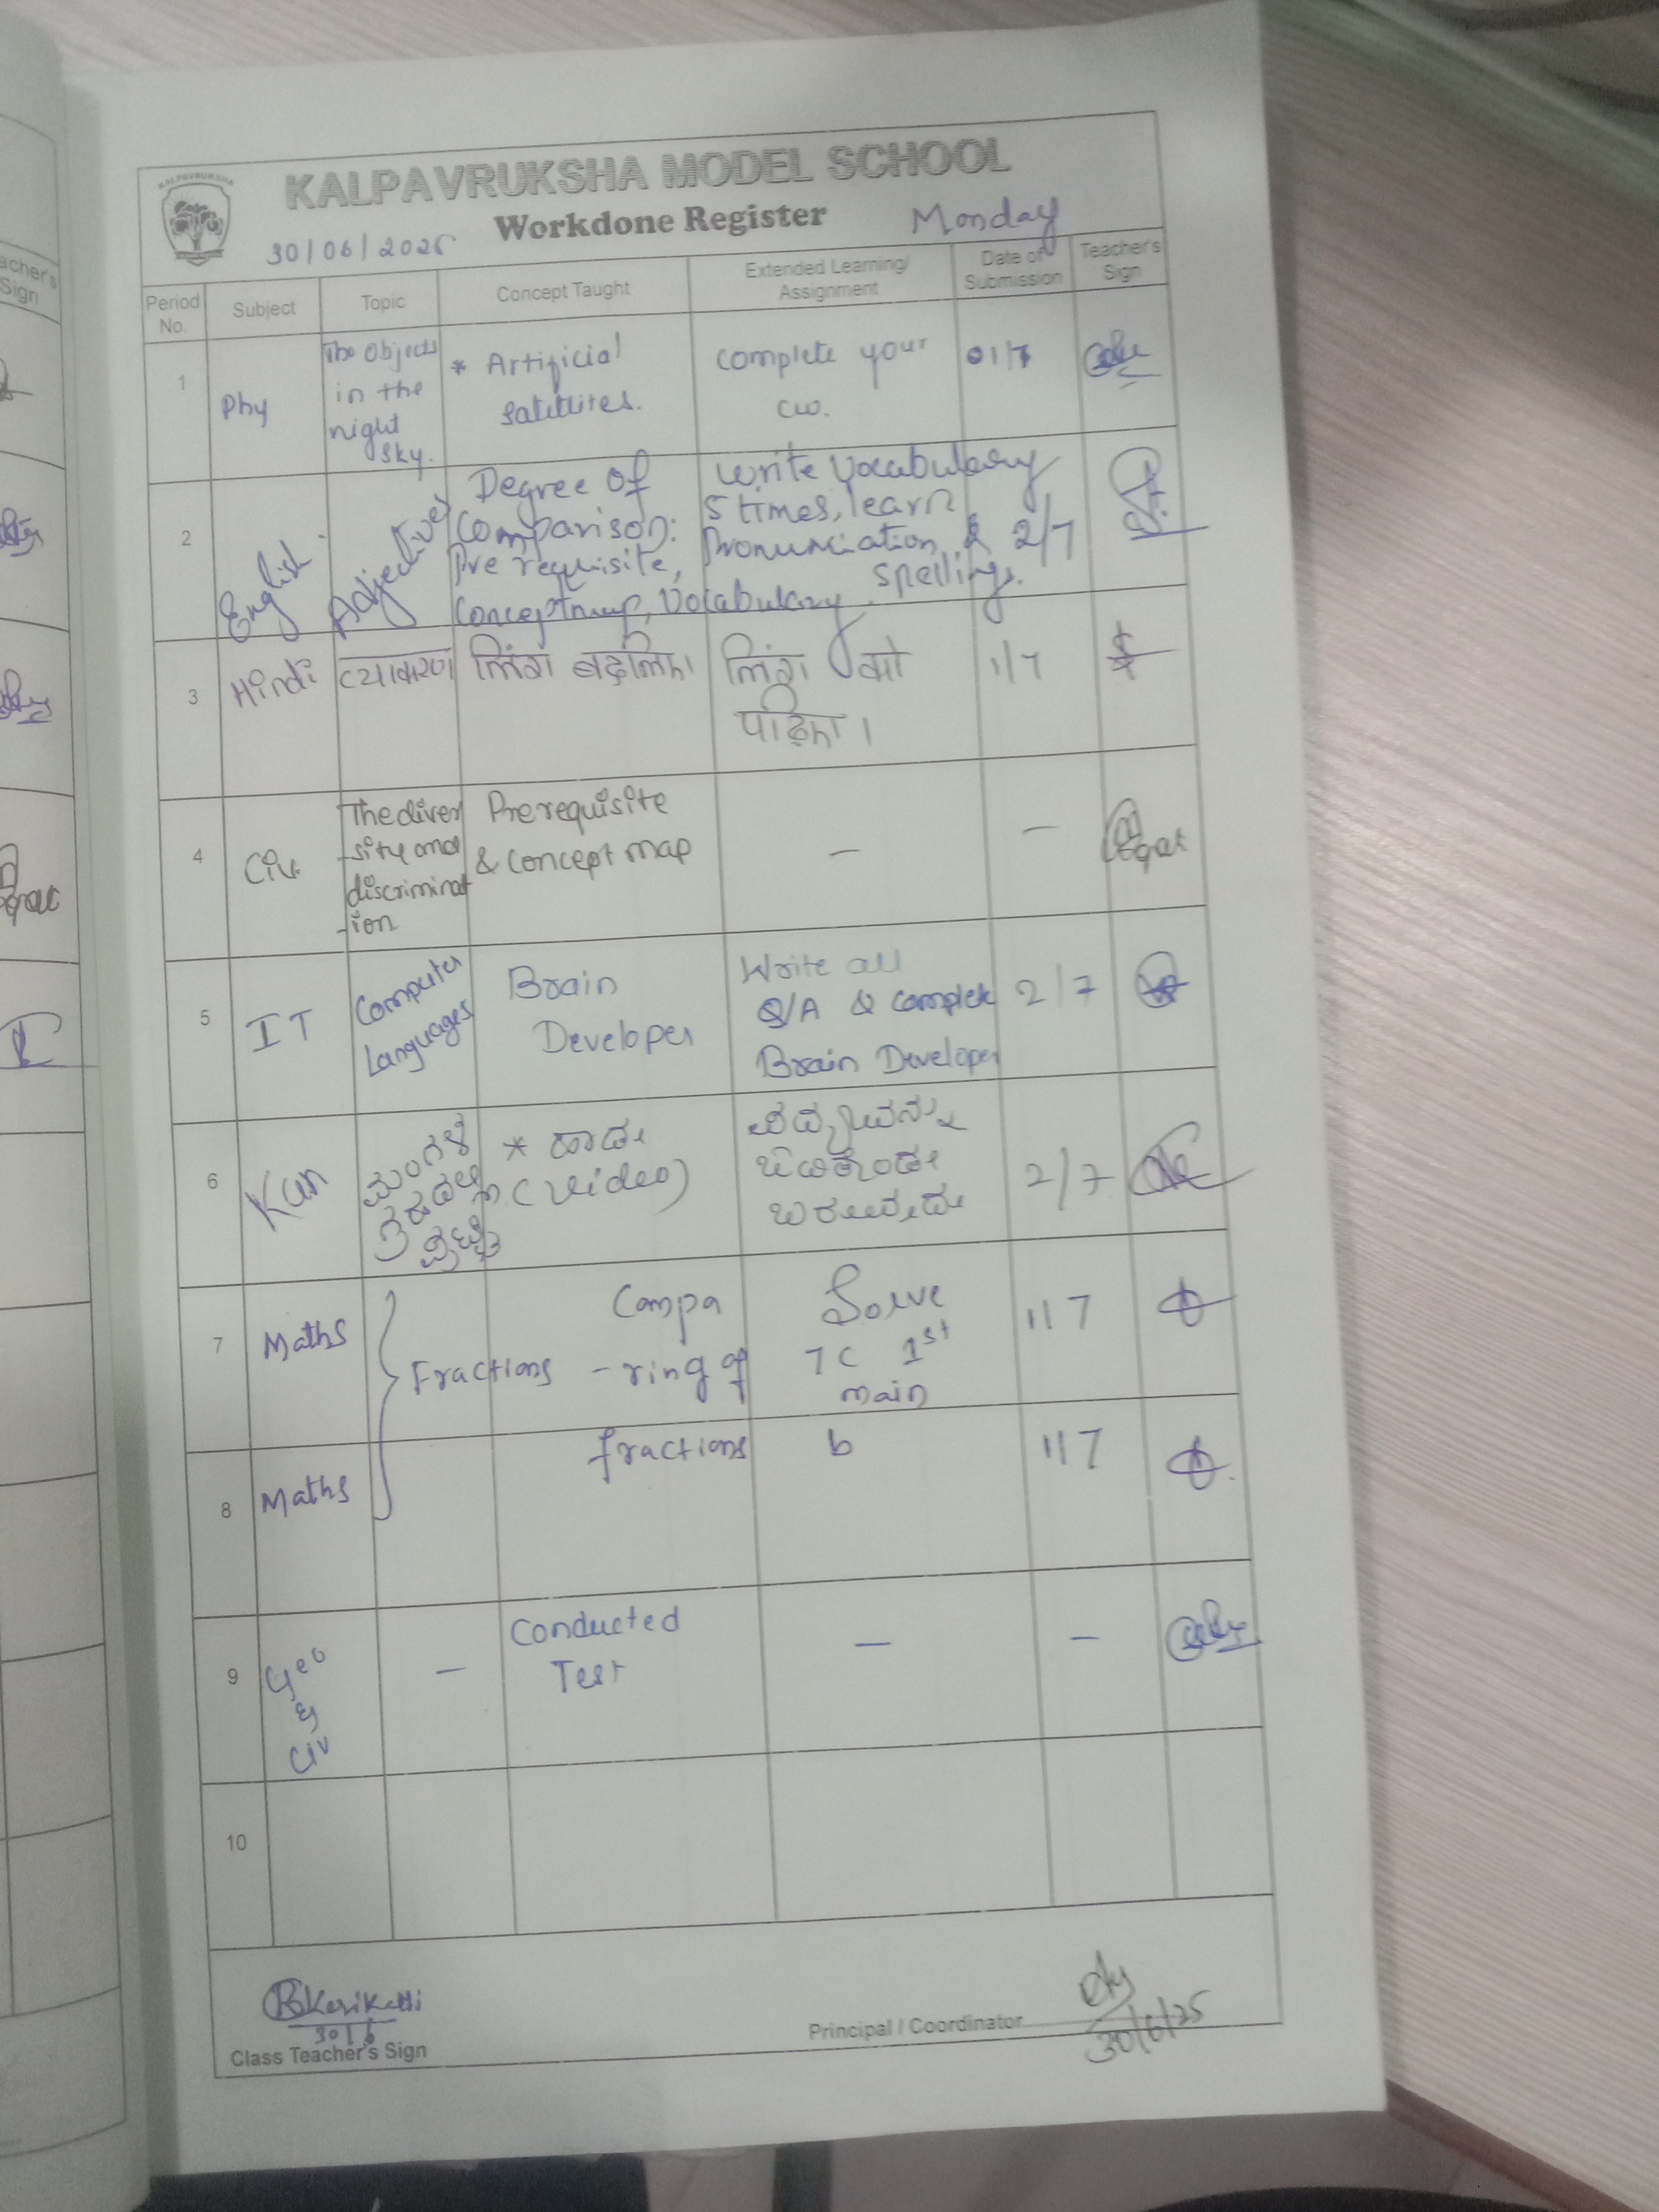 KALPAVRUKSHA
KALPAVRUKSHA MODEL SCHOOL
Workdone Register
Monday
30/06/2025
Period No.
Subject
Topic
Concept Taught
Extended Learning/ Assignment
Date of Submission
Teacher's Sign
1
Phy
The Objects
in the
night
sky.
* Artificial
satellites.
complete your
cw.
01/7
2
English
Adjectives
Degree of
Comparison:
Pre requisite,
Conceptmap, Vocabulary
Write Vocabulary
5 times, learn
Pronunciation &
spellings.
2/7
3
Hindi
व्याकरण
लिंग बदलिए
लिंग को
पढ़िए।
1/7
4
Civ
The diver
-sity and
discriminat
-ion
Prerequisite
& concept map
—
—
5
IT
Computer
Languages
Brain
Developer
Write all
Q/A & complete
Brain Developer
2/7
6
Kan
* ಹಾಡು
(Video)
ಪದ್ಯವನ್ನು
ಬರೆಯುವುದು
2/7
7
Maths
Fractions
Compa
-ring of
Solve
7C 1st
main
1/7
8
Maths
fractions
b
1/7
9
Geo
&
Civ
—
Conducted
Test
—
—
10
30/6
Class Teacher's Sign
Principal / Coordinator
30/6/25